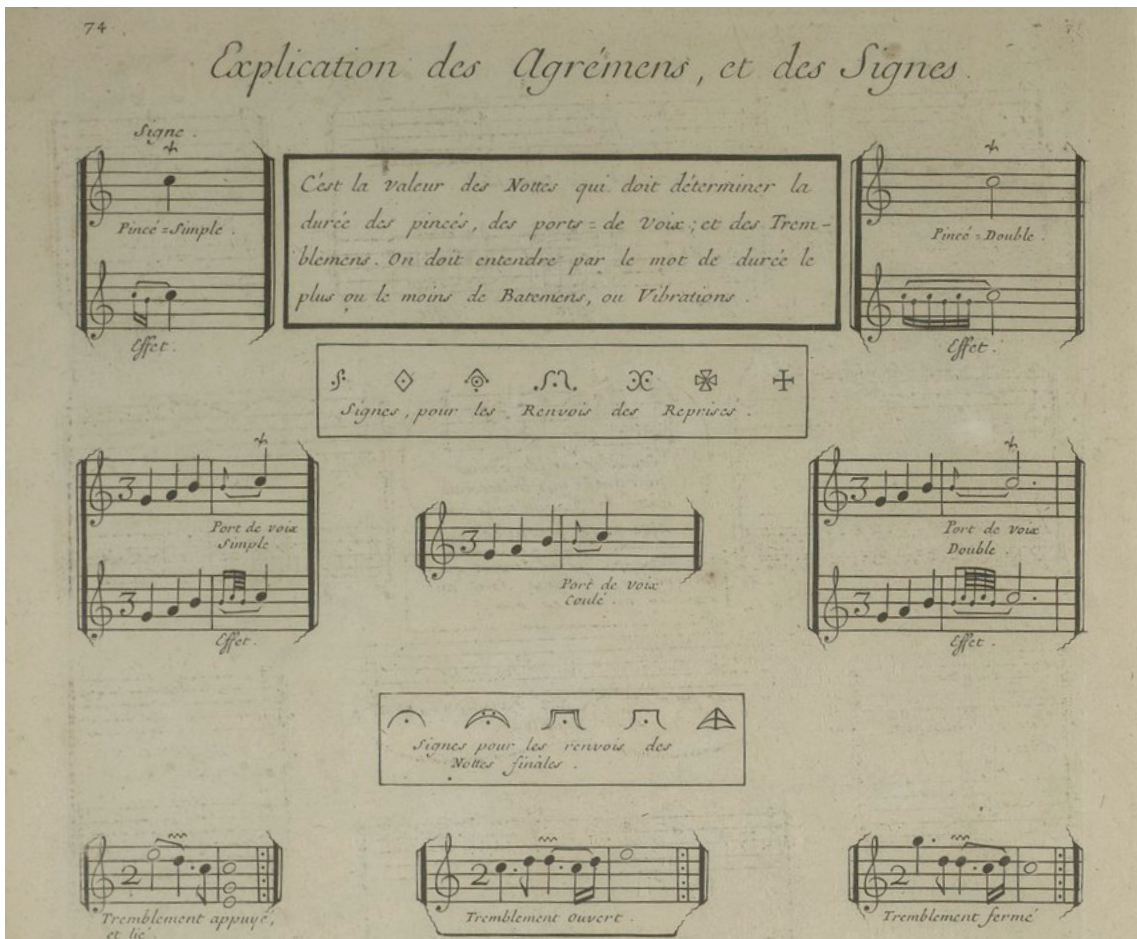 74
Explication des Agrémens, et des Signes.
Signe.
Pincé=Simple.
Effet.
C'est la valeur des Nottes qui doit déterminer la
durée des pincés, des ports=de voix; et des Trem-
blemens. On doit entendre par le mot de durée le
plus ou le moins de Batemens, ou Vibrations.
Pincé=Double.
Effet.
Signes, pour les Renvois des Reprises.
3
Port de voix
Simple.
3
Effet.
3
Port de voix
Coulé.
3
Port de voix
Double.
3
Effet.
Signes pour les renvois des
Nottes finales.
2
Tremblement appuyé,
et lié
2
Tremblement Ouvert.
2
Tremblement fermé